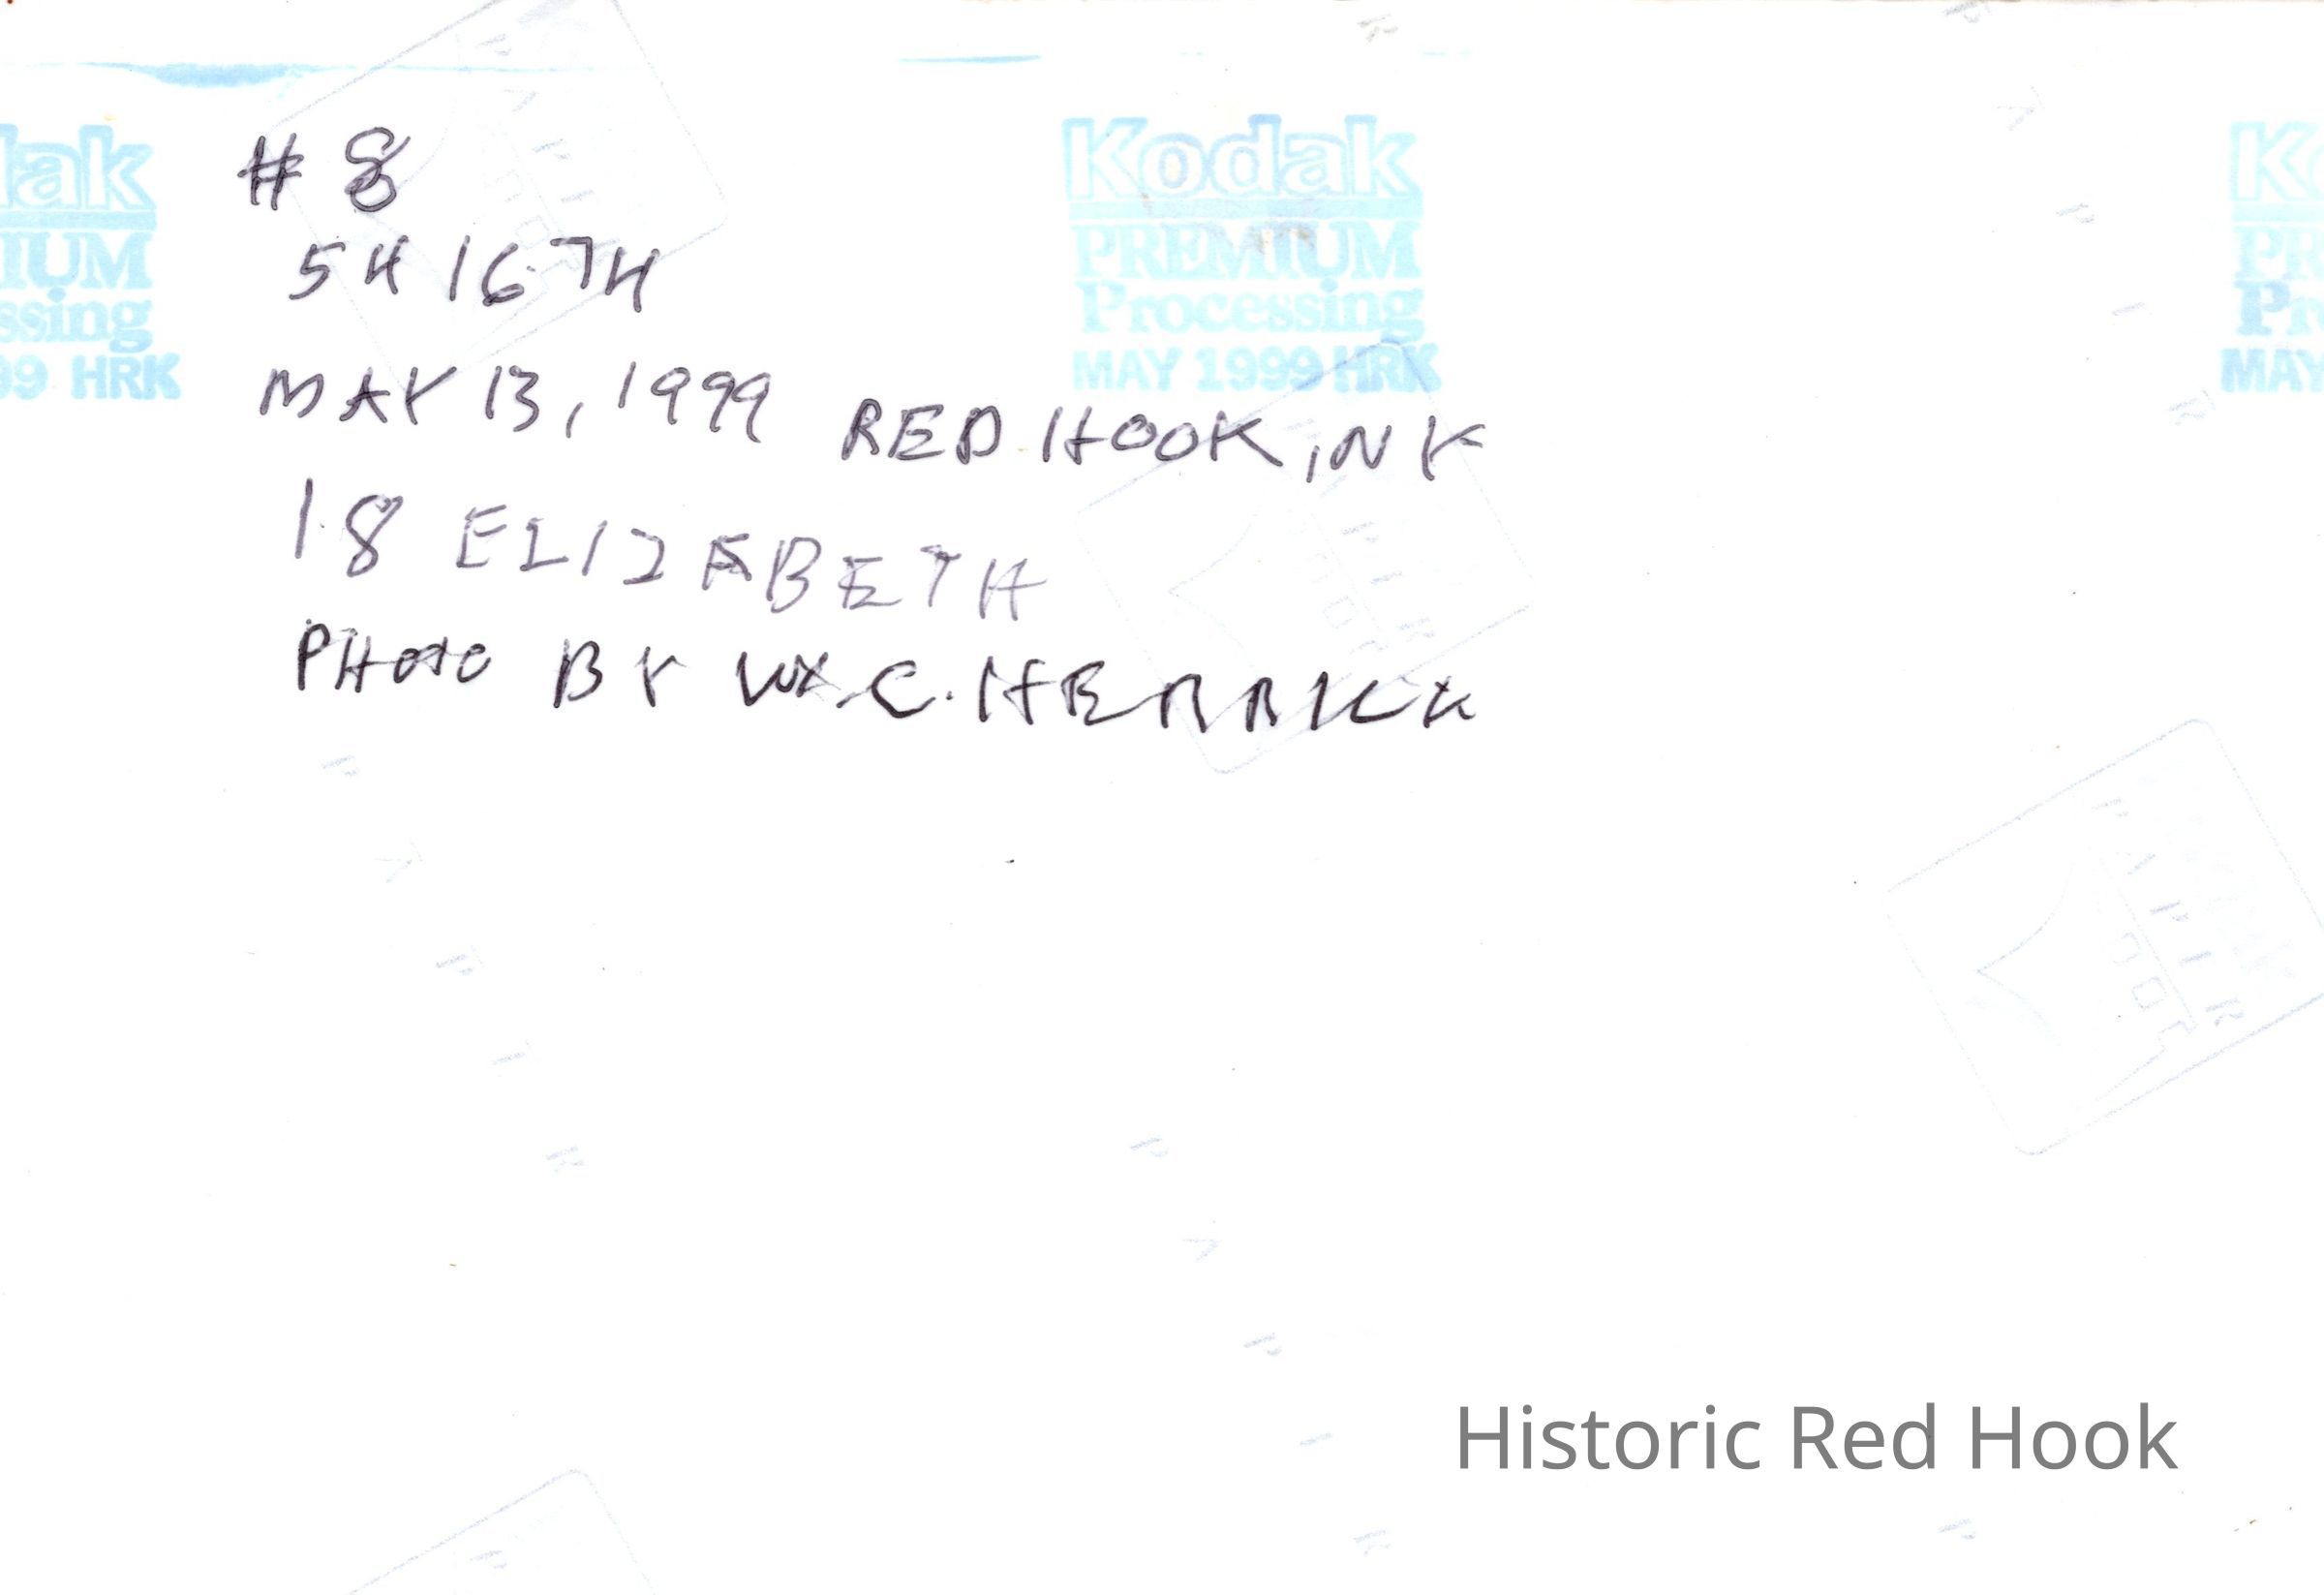 # 8
54 1674
MAY 13, 1999 RED HOOK, NY
18 ELIZABETH
PHOTO BY WM. C. HERRICK
dak
IUM
ssing
99 HRK
Kodak
PREMIUM
Processing
MAY 1999 HRK
Ko
PR
Pr
MAY
Historic Red Hook